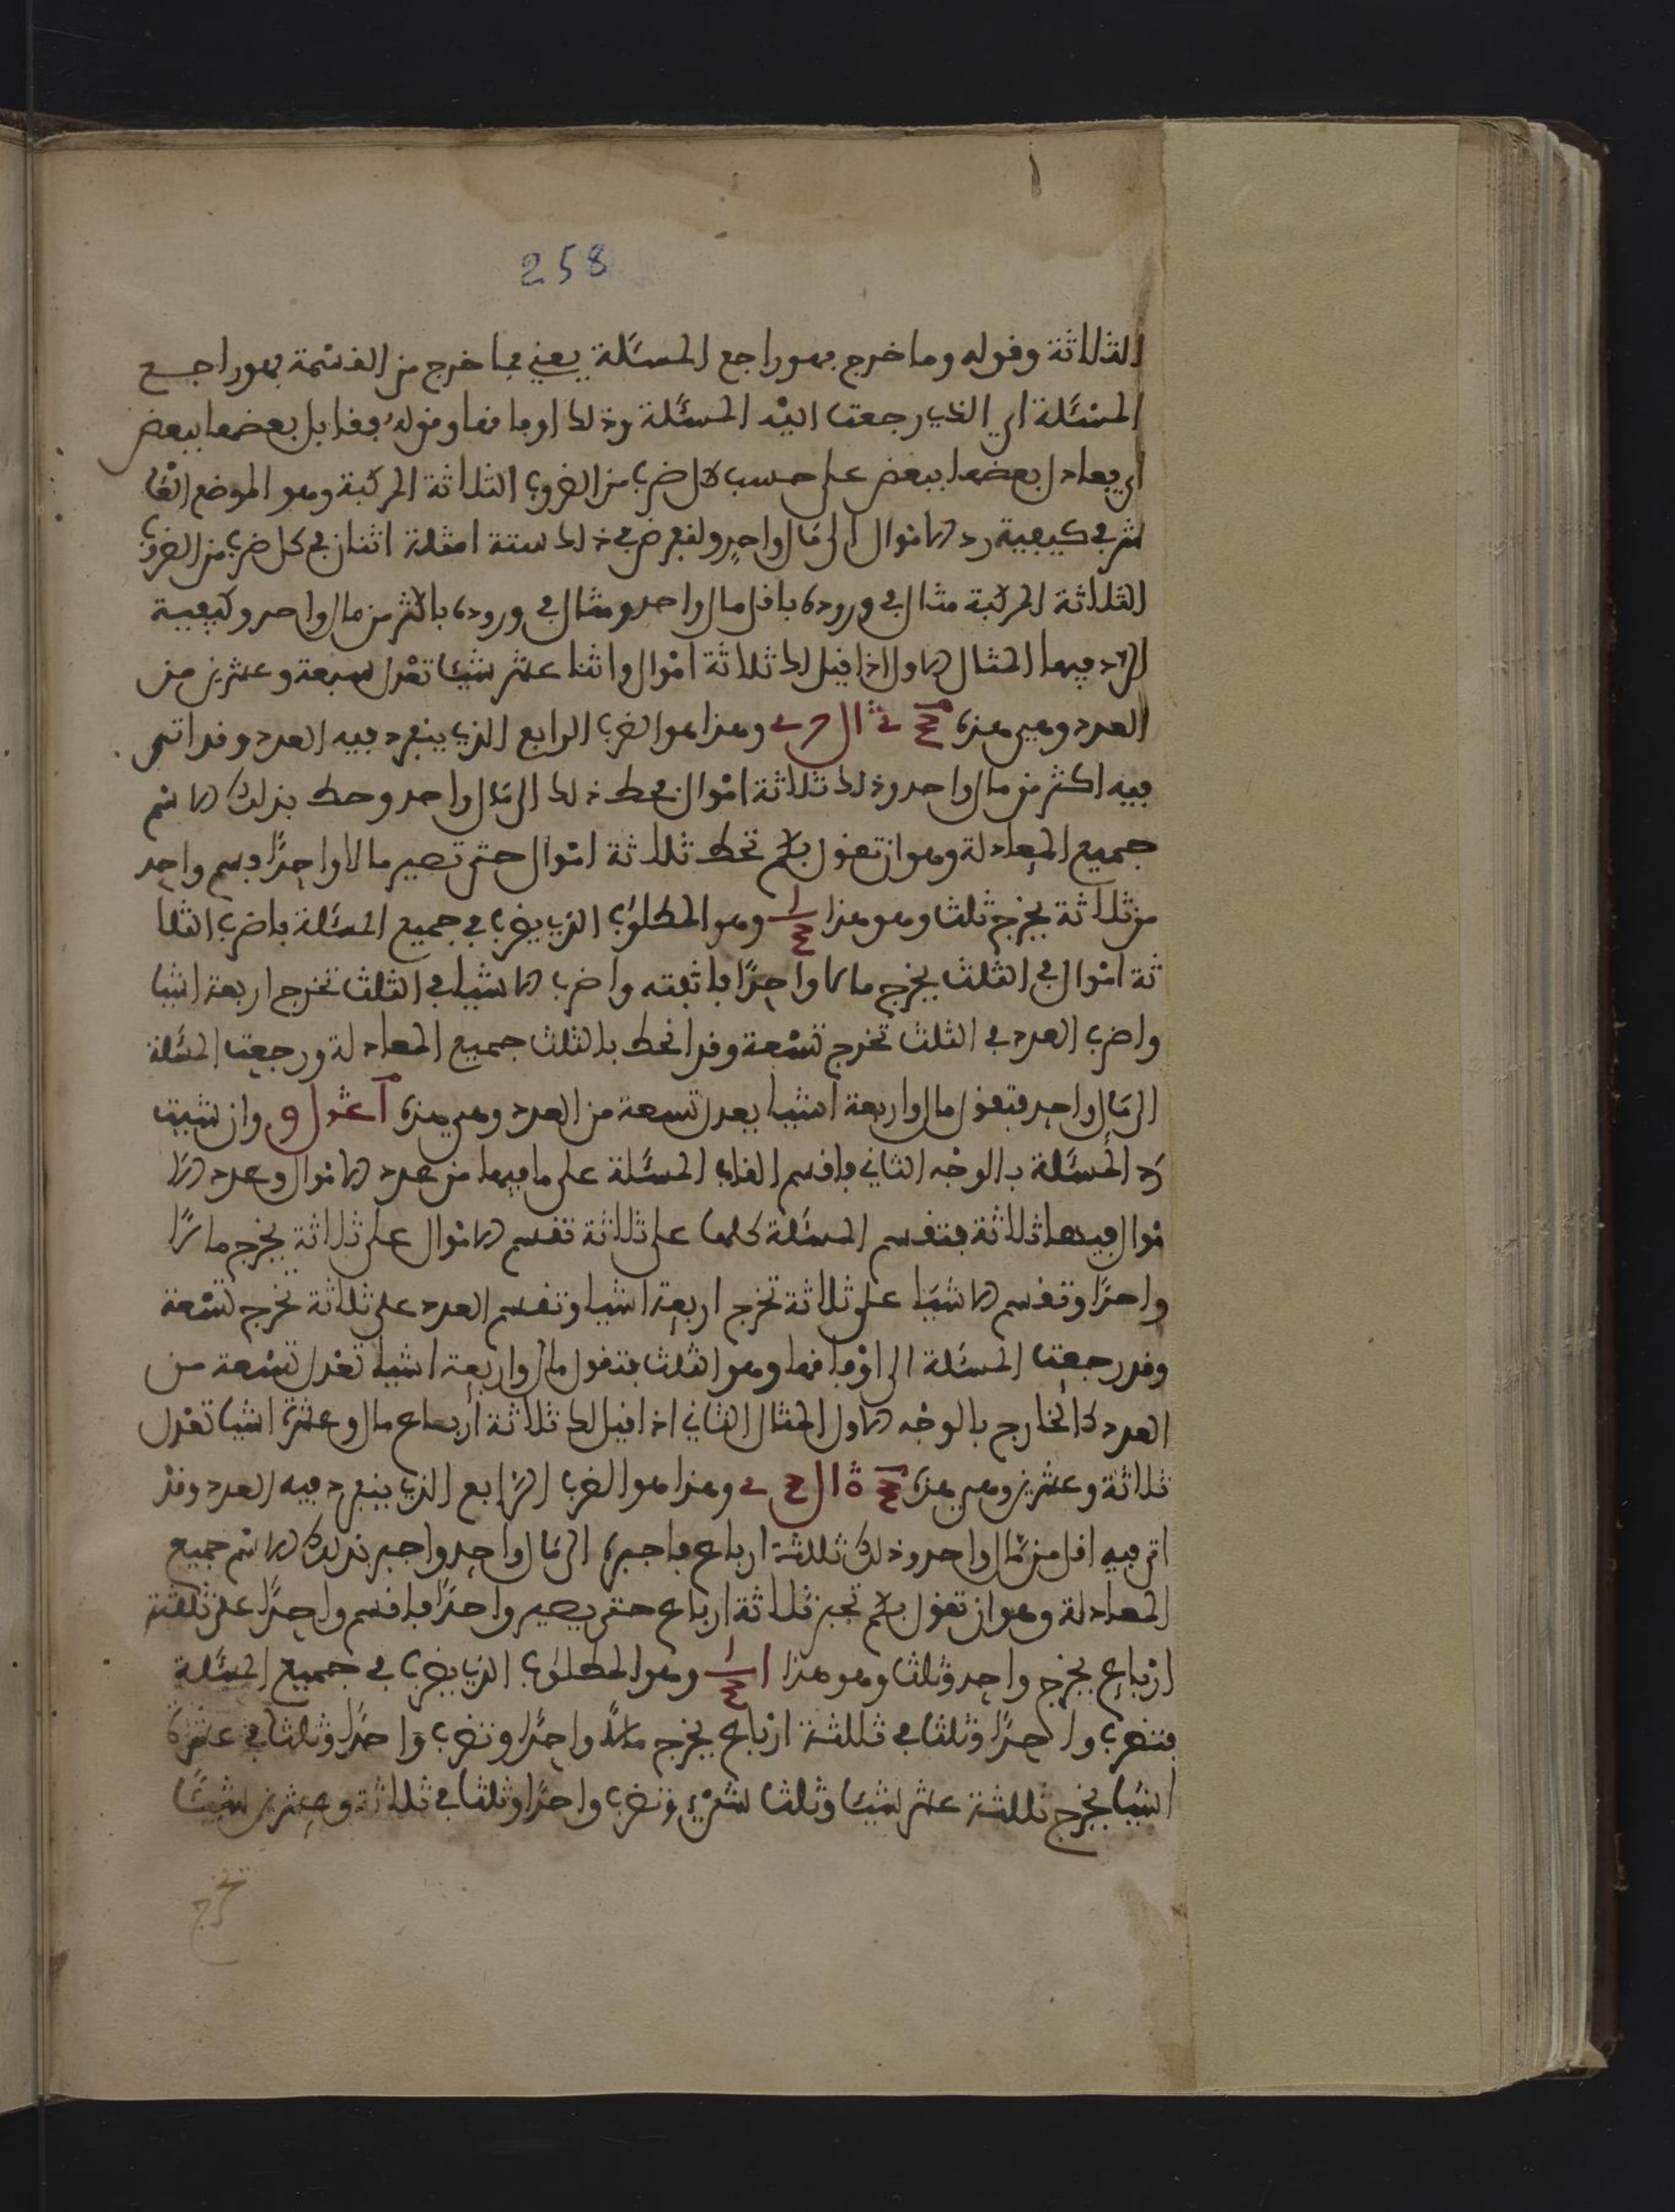 258
الثلاثة وقوله وما خرج فهو راجع المسئلة يعني فما خرج من القسمة فهو راجع
المسئلة اي الذي رجعت اليه المسئلة وذلك اوفاقها وقوله فقابل بعضها ببعض
اي يعادل بعضها ببعض على حسب كل ضرب من الضروب الثلاثة المركبة وهو الموضع
في كيفية رد الاموال الى مال واحد ولنفرض في ذلك ستة امثلة اثنان في كل ضرب من الضروب
الثلاثة المركبة مثال في وروده باقل مال واحد ومثال في وروده باكثر من مال واحد وكيفية
الرد فيهما المثال الاول اذا قيل لك ثلاثة اموال واثنا عشر شيئا تعدل سبعة وعشرين من
العدد وهي هذه وهذا هو الضرب الرابع الذي ينفرد فيه العدد وقد اتى
فيه اكثر من مال واحد وذلك ثلاثة اموال فحط ذلك الى مال واحد وحط بذلك الاسم
جميع المعادلة وهو ان تقول بكم تحط ثلاثة اموال حتى تصير مالا واحدا فسم واحد
من ثلاثة يخرج ثلث وهو هذا وهو المطلوب الذي يضرب في جميع المسئلة فاضرب الثلا
ثة اموال في الثلث يخرج مالا واحدا فاثبته واضرب الاشيا في الثلث تخرج اربعة اشيا
واضرب العدد في الثلث تخرج تسعة وقد انحط بالثلث جميع المعادلة ورجعت المسئلة
الى مال واحد فتقول مال واربعة اشيا يعدل تسعة من العدد وهي هذه وان شيت
رد المسئلة بالوجه الثاني فاقسم القاب المسئلة على ما فيها من عدد الاموال وعدد الا
موال فيها ثلاثة فتقسم المسئلة كلها على ثلاثة تقسم الاموال على ثلاثة يخرج مالا
واحدا وتقسم الاشيا على ثلاثة تخرج اربعة اشيا وتقسم العدد على ثلاثة تخرج تسعة
وقد رجعت المسئلة الى اوفاقها وهو الثلث فتقول مال واربعة اشيا تعدل تسعة من
العدد كالخارج بالوجه الاول المثال الثاني اذا قيل لك ثلاثة أرباع مال وعشرة اشيا تعدل
ثلاثة وعشرين وهي هذه وهذا هو الضرب الرابع الذي ينفرد فيه العدد وقد
اتى فيه اقل من مال واحد وذلك ثلثة ارباع فاجبره الى مال واحد واجبر بذلك الاسم جميع
المعادلة وهو ان تقول بكم تجبر ثلاثة ارباع حتى يصير واحدا فاقسم واحدا على ثلثة
ارباع يخرج واحد وثلث وهو هذا وهو المطلوب الذي يضرب في جميع المسئلة
فتضرب واحدا وثلثا في ثلثة ارباع يخرج مالا واحدا وتضرب واحدا وثلثا في عشرة
اشيا يخرج ثلثة عشر شيئا وثلث شيء وتضرب واحدا وثلثا في ثلاثة وعشرين شيئا
تخرج